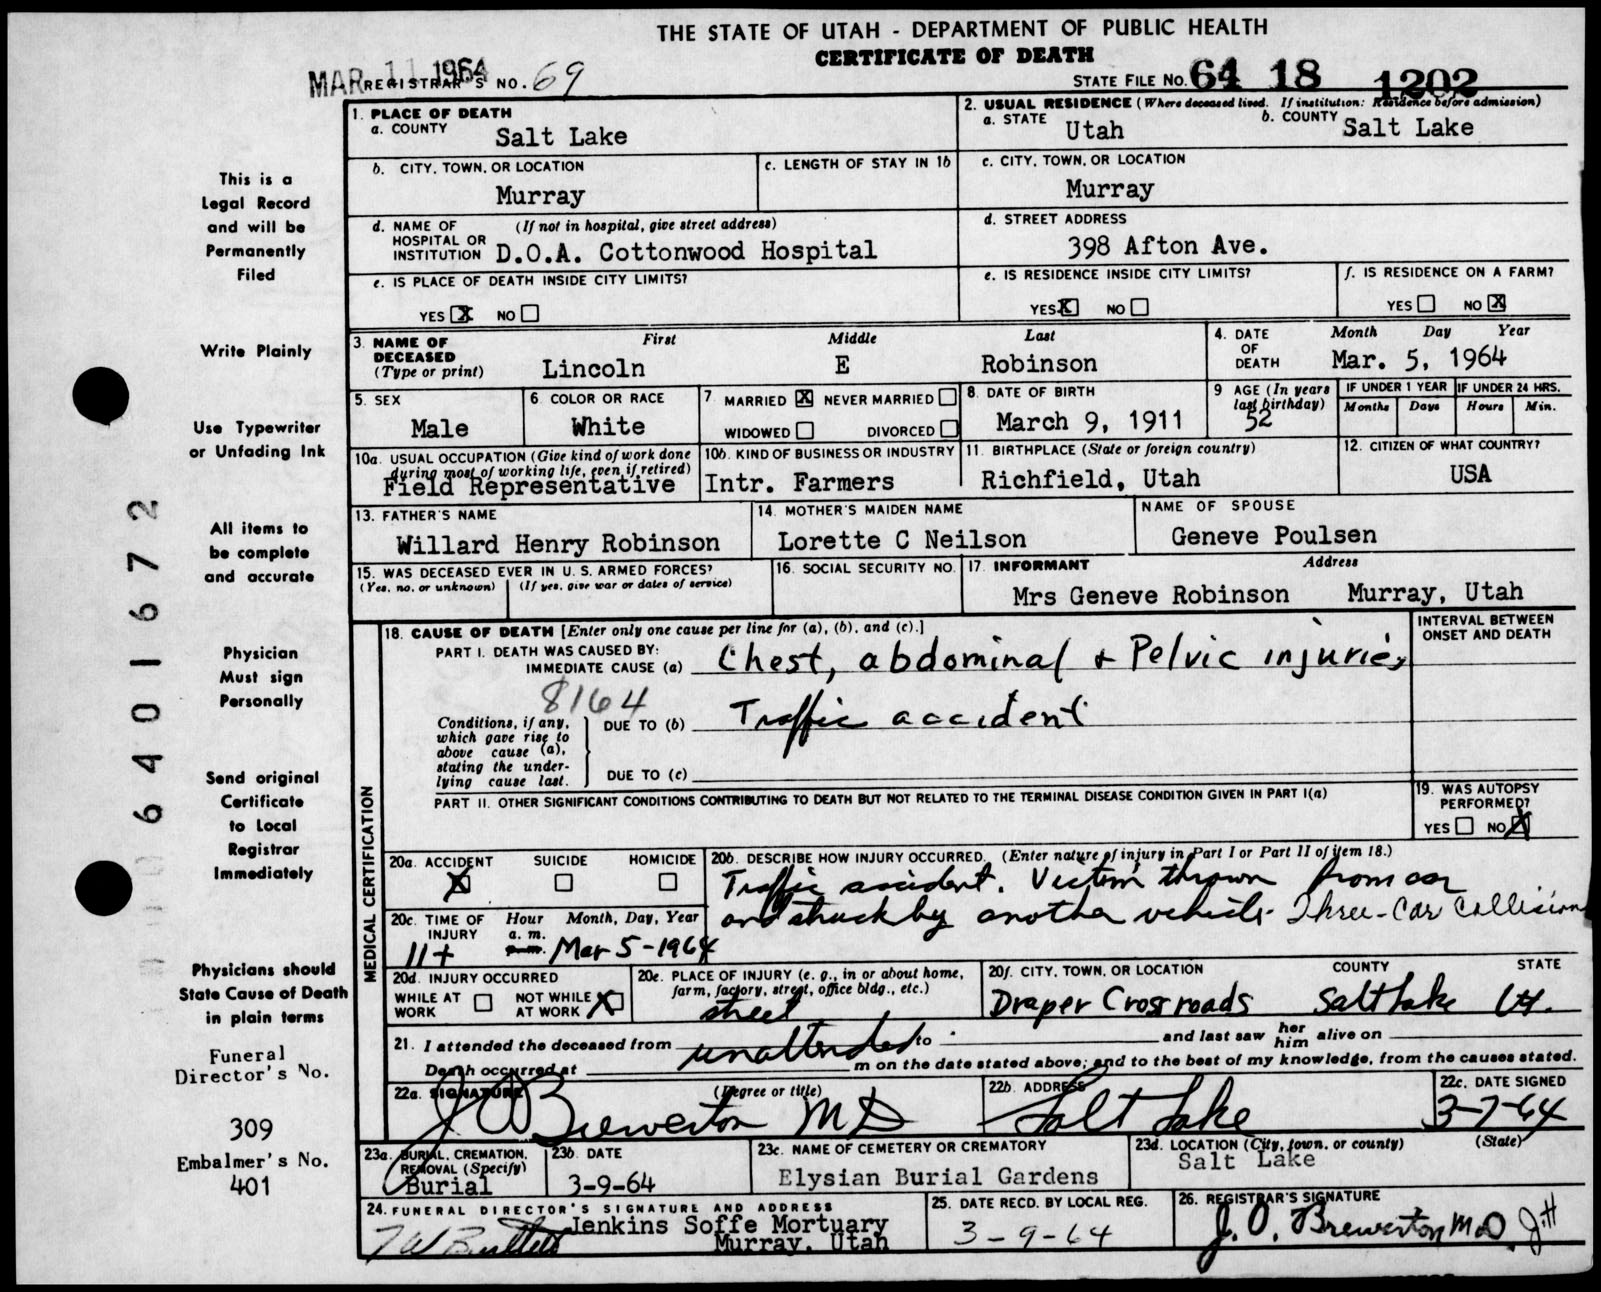 THE STATE OF UTAH - DEPARTMENT OF PUBLIC HEALTH
CERTIFICATE OF DEATH
MAR 11 1964
REGISTRAR'S NO. 69
STATE FILE NO. 64 18 1202
This is a
Legal Record
and will be
Permanently
Filed
Write Plainly
Use Typewriter
or Unfading Ink
All items to
be complete
and accurate
Physician
Must sign
Personally
Send original
Certificate
to Local
Registrar
Immediately
Physicians should
State Cause of Death
in plain terms
Funeral
Director's No.
309
Embalmer's No.
401
6401672
1. PLACE OF DEATH
a. COUNTY
Salt Lake
2. USUAL RESIDENCE (Where deceased lived. If institution: Residence before admission)
a. STATE Utah
b. COUNTY Salt Lake
b. CITY, TOWN, OR LOCATION
Murray
c. LENGTH OF STAY IN 1b
c. CITY, TOWN, OR LOCATION
Murray
d. NAME OF HOSPITAL OR INSTITUTION (If not in hospital, give street address)
D.O.A. Cottonwood Hospital
d. STREET ADDRESS
398 Afton Ave.
e. IS PLACE OF DEATH INSIDE CITY LIMITS?
YES X NO
e. IS RESIDENCE INSIDE CITY LIMITS?
YES X NO
f. IS RESIDENCE ON A FARM?
YES NO X
3. NAME OF DECEASED (Type or print)
First Middle Last
Lincoln E Robinson
4. DATE OF DEATH
Month Day Year
Mar. 5, 1964
5. SEX
Male
6. COLOR OR RACE
White
7. MARRIED X NEVER MARRIED
WIDOWED DIVORCED
8. DATE OF BIRTH
March 9, 1911
9 AGE (In years last birthday)
52
IF UNDER 1 YEAR
Months Days
IF UNDER 24 HRS.
Hours Min.
10a. USUAL OCCUPATION (Give kind of work done during most of working life, even if retired)
Field Representative
10b. KIND OF BUSINESS OR INDUSTRY
Intr. Farmers
11. BIRTHPLACE (State or foreign country)
Richfield, Utah
12. CITIZEN OF WHAT COUNTRY?
USA
13. FATHER'S NAME
Willard Henry Robinson
14. MOTHER'S MAIDEN NAME
Lorette C Neilson
NAME OF SPOUSE
Geneve Poulsen
15. WAS DECEASED EVER IN U. S. ARMED FORCES?
(Yes, no, or unknown) (If yes, give war or dates of service)
16. SOCIAL SECURITY NO.
17. INFORMANT Address
Mrs Geneve Robinson Murray, Utah
MEDICAL CERTIFICATION
18. CAUSE OF DEATH [Enter only one cause per line for (a), (b), and (c).]
INTERVAL BETWEEN ONSET AND DEATH
PART I. DEATH WAS CAUSED BY:
IMMEDIATE CAUSE (a) Chest, abdominal & Pelvic injuries
8164
Conditions, if any, which gave rise to above cause (a), stating the underlying cause last.
DUE TO (b) Traffic accident
DUE TO (c)
PART II. OTHER SIGNIFICANT CONDITIONS CONTRIBUTING TO DEATH BUT NOT RELATED TO THE TERMINAL DISEASE CONDITION GIVEN IN PART I(a)
19. WAS AUTOPSY PERFORMED?
YES NO X
20a. ACCIDENT SUICIDE HOMICIDE
X
20b. DESCRIBE HOW INJURY OCCURRED. (Enter nature of injury in Part I or Part II of item 18.)
Traffic accident. Victim thrown from car
and struck by another vehicle. Three-Car Collision
20c. TIME OF INJURY
Hour Month, Day, Year
a. m.
11+ Mar 5-1964
20d. INJURY OCCURRED
WHILE AT WORK NOT WHILE AT WORK X
20e. PLACE OF INJURY (e. g., in or about home, farm, factory, street, office bldg., etc.)
street
20f. CITY, TOWN, OR LOCATION COUNTY STATE
Draper Crossroads Salt Lake Ut.
21. I attended the deceased from unattended to and last saw her him alive on
Death occurred at m on the date stated above; and to the best of my knowledge, from the causes stated.
22a. SIGNATURE (Degree or title)
J O Brewerton MD
22b. ADDRESS
Salt Lake
22c. DATE SIGNED
3-7-64
23a. BURIAL, CREMATION, REMOVAL (Specify)
Burial
23b. DATE
3-9-64
23c. NAME OF CEMETERY OR CREMATORY
Elysian Burial Gardens
23d. LOCATION (City, town, or county) (State)
Salt Lake
24. FUNERAL DIRECTOR'S SIGNATURE AND ADDRESS
Jenkins Soffe Mortuary
Murray, Utah
25. DATE RECD. BY LOCAL REG.
3-9-64
26. REGISTRAR'S SIGNATURE
J. O. Brewerton M.D. JH